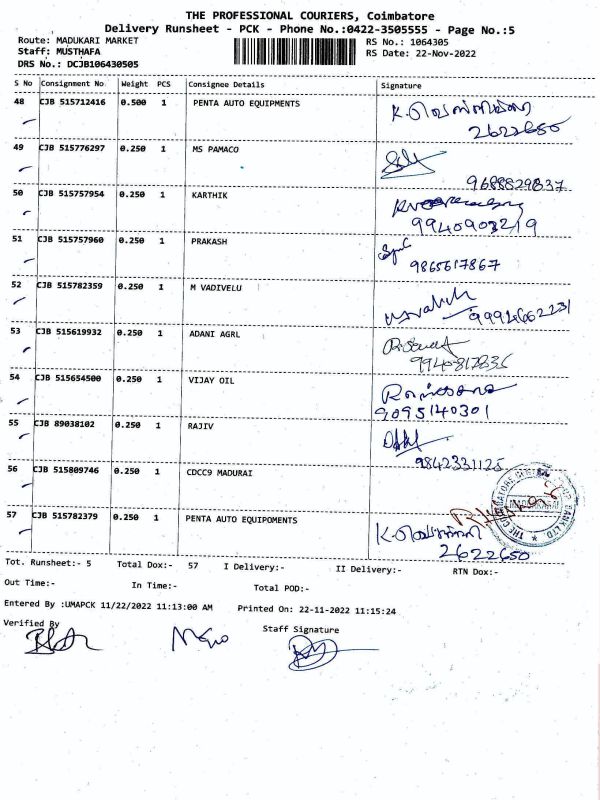 THE PROFESSIONAL COURIERS, Coimbatore
Delivery Runsheet - PCK - Phone No.:0422-3505555 - Page No.:5
Route: MADUKARI MARKET RS No.: 1064305
Staff: MUSTHAFA RS Date: 22-Nov-2022
DRS No.: DCJB106430505
S No Consignment No Weight PCS Consignee Details Signature
48 CJB 515712416 0.500 1 PENTA AUTO EQUIPMENTS
2622650
49 CJB 515776297 0.250 1 MS PAMACO
9688829837
50 CJB 515757954 0.250 1 KARTHIK
9940903219
51 CJB 515757960 0.250 1 PRAKASH
9865617867
52 CJB 515782359 0.250 1 M VADIVELU
53 CJB 515619932 0.250 1 ADANI AGRL
54 CJB 515654500 0.250 1 VIJAY OIL
9095140301
55 CJB 89038102 0.250 1 RAJIV
9842331125
56 CJB 515809746 0.250 1 CDCC9 MADURAI
57 CJB 515782379 0.250 1 PENTA AUTO EQUIPOMENTS
2622650
Tot. Runsheet:- 5 Total Dox:- 57 I Delivery:- II Delivery:- RTN Dox:-
Out Time:- In Time:- Total POD:-
Entered By :UMAPCK 11/22/2022 11:13:00 AM Printed On: 22-11-2022 11:15:24
Verified By Staff Signature